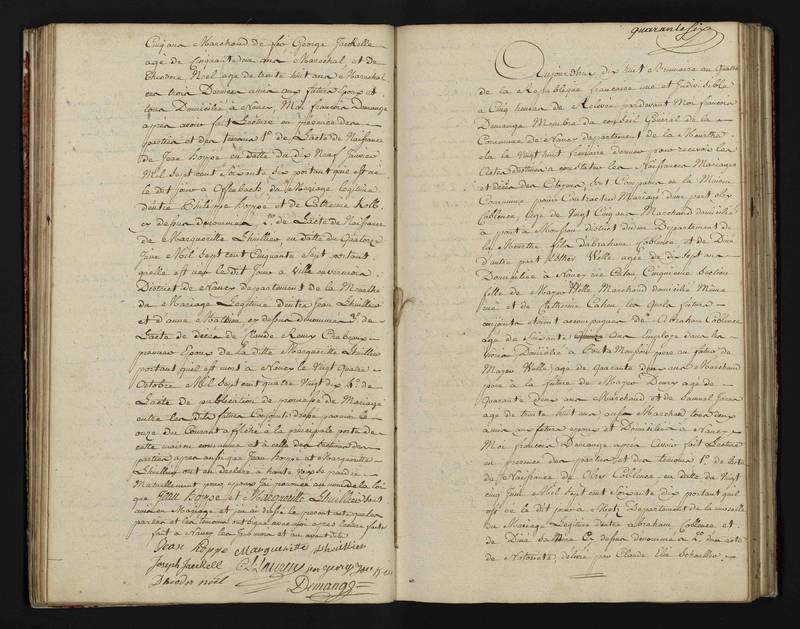 Cinq ans Marchand de fer George Jaeckelle
age de Cinquante un ans Marechal, et de
Theodore Noel age de trente huit ans Marechal
ces trois Derniers amis aux futurs Epoux et
tous Domiciliés a Nancy, Moi françois Demange
après avoir fait Lecture en presence des
parties et des temoins 1º. de Lacte de Naissance
de Jean hoppe en datte du dix Neuf Janvier
Mil Sept cent Soixante six portant que est né
le dit jour a du Mariage legitime
d'entre Philippe hoppe et de Catherine
cy dessus denommés. 2º. de Lacte de Naissance
de Marguerite Lhuillier en datte du Quatorze
Juin Mil Sept cent Cinquante Sept portant
quelle est née le dit Jour a Ville en vermois
District de Nancy departement de la Meurthe
du Mariage Legitime d'entre Jean Lhuillier
et d'anne Mathieu cy dessus denommés 3º. de
Lacte de décès de Claude Remy
premier Epoux de la ditte Marguerite Lhuillier
portant quil est mort a Nancy le Vingt Quatre
Octobre Mil Sept cent quatre Vingt dix 4º. de
Lacte de publication de promesse de Mariage
entre les dits futurs Conjoints dressé par moi le
onze du Courant affiché à la principale porte de
cette maison commune et à celle des Sections des
parties apres aussi que Jean hoppe et Marguerite
Lhuillier ont eu declaré à haute voix se prendre
Mutuellement pour epoux J'ai prononcé au nom de la loi
que Jean hoppe et Marguerite Lhuillier sont
unis en Mariage et j'ai dressé le present acte que les
parties et les temoins ont signé avec moi apres lecture faite
fait a Nancy les Jour mois et an avant dits
Jean hoppe Marguerite Lhuillier
Joseph Jaeckell
theodor noël Demange
quarante six
Aujourdhui dix huit Brumaire an Quatre
de la Republique francaise une et Indivisible
a Cinq heures de Relevée pardevant Moi francois
Demange Membre du conseil General de la
Commune de Nancy departement de la Meurthe
elu le Vingt huit frimaire dernier pour recevoir les
Actes destinés a constater les Naissances Mariages
et décès des Citoyens, sont Comparus en la Maison
Commune pour Contracter Mariage d'une part
Coblence, age de Vingt Cinq ans Marchand domicilié
a pont a Mousson district dudit Departement de
la Meurthe fils d'abraham Coblence, et de Dina
d'autre part Esther Welle agée de dix Sept ans
Domiciliée à Nancy rue Callot, Cinquieme Section
fille de Mayer Welle Marchand domicilié Même
rue et de Catherine Cahen, les quels futurs
conjoints etoient accompagnés de Abraham Coblence
age de Soixante ans Employé dans les
vivres Domicilié a Pont a Mousson pere au futur de
Mayer Welle, age de Quarante deux ans Marchand
pere à la future de Mayer age de
Quarante Deux ans Marchand et de Samuel
age de trente huit ans aussi Marchand tous deux
amis aux futurs epoux et Domiciliés a Nancy
Moi françois Demange apres avoir fait Lecture
en presence des parties et des temoins 1º. de Lacte
de Naissance de Coblence en datte du Vingt
cinq Juin Mil Sept cent Soixante dix portant quil
est né le dit jour à Metz Departement de la moselle
du Mariage Legitime d'entre Abraham Coblence et
de Dina sa Mere Cy dessus denommés 2º. d'un acte
de Notorieté, délivré par Claude Elie